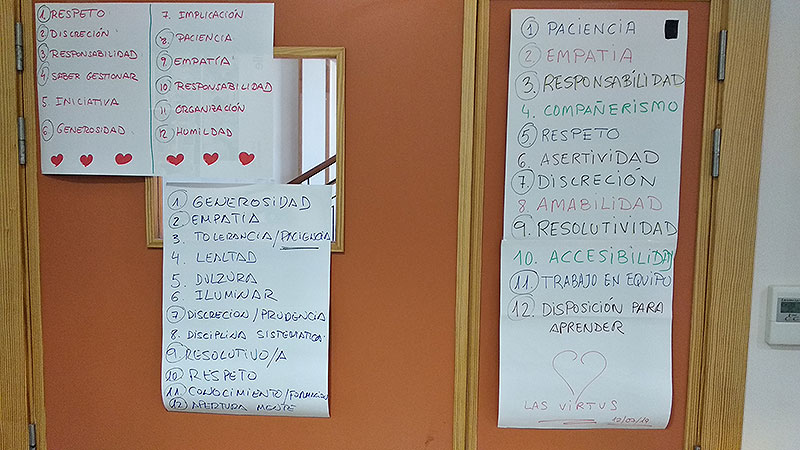 1 RESPETO
2 DISCRECIÓN
3 RESPONSABILIDAD
4 SABER GESTIONAR
5. INICIATIVA
6 GENEROSIDAD
7. IMPLICACIÓN
8. PACIENCIA
9. EMPATÍA
10 RESPONSABILIDAD
11 ORGANIZACIÓN
12 HUMILDAD
1 GENEROSIDAD
2. EMPATIA
3. TOLERANCIA/PACIENCIA
4. LEALTAD
5. DULZURA
6. ILUMINAR
7 DISCRECION/PRUDENCIA
8. DISCIPLINA SISTEMATICA
9. RESOLUTIVO/A
10 RESPETO
11 CONOCIMIENTO/FORMACION
12) APERTURA MENTE
1 PACIENCIA
2 EMPATIA
3. RESPONSABILIDAD
4. COMPAÑERISMO
5 RESPETO
6. ASERTIVIDAD
7. DISCRECIÓN
8. AMABILIDAD
9. RESOLUTIVIDAD
10. ACCESIBILIDAD
11. TRABAJO EN EQUIPO
12. DISPOSICIÓN PARA
APRENDER
LAS VIRTUS